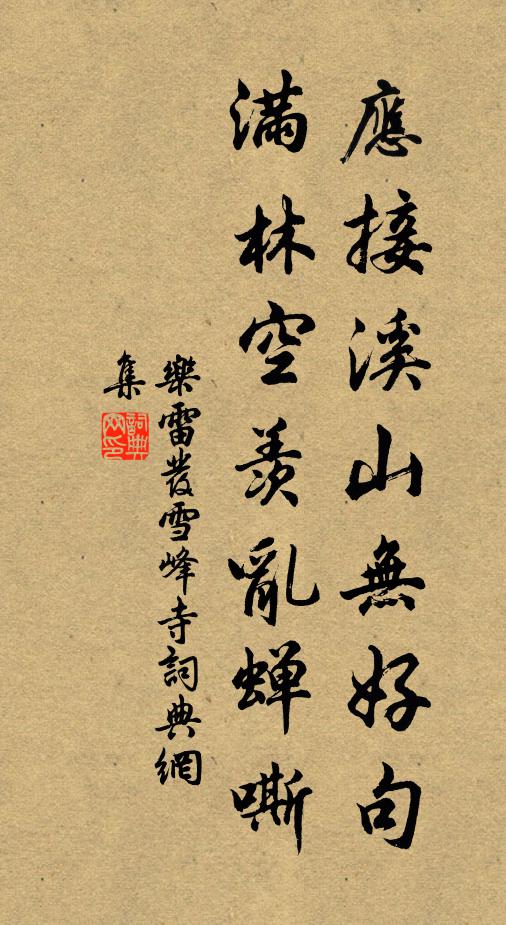 應接溪山無好句
滿林空羡亂蟬嘶
樂雷發雪峰寺詞典網
集
詞典網印